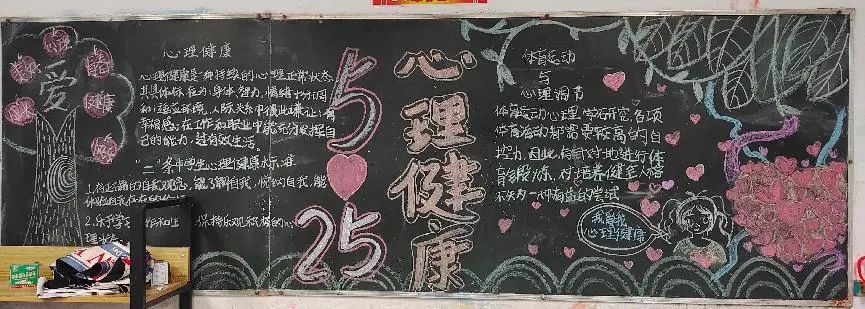 心理
爱
健康
心理健康
心理健康是一种持续的心理正常状态,
具具体体在为:身体、智力、情绪十分调
和;适应环境,人际关系中彼此谦让;有
幸福感;在工作和职业中能充分发挥自
己的能力,过有效生活。
"二"条中学生心理健康标准
1.有正确的自我观念,能了解自我,悦纳自我,能
2.乐于学习
保持乐观积极的心
理状态
5
25
心理健康
体育运动
与
心理调节
体育运动心理学研究,各项
体育运动都需要较高的自
控力,因此,有针对地进行体
育锻炼,对培养健全人格
不失为一种有益的尝试
我学我
心理健康